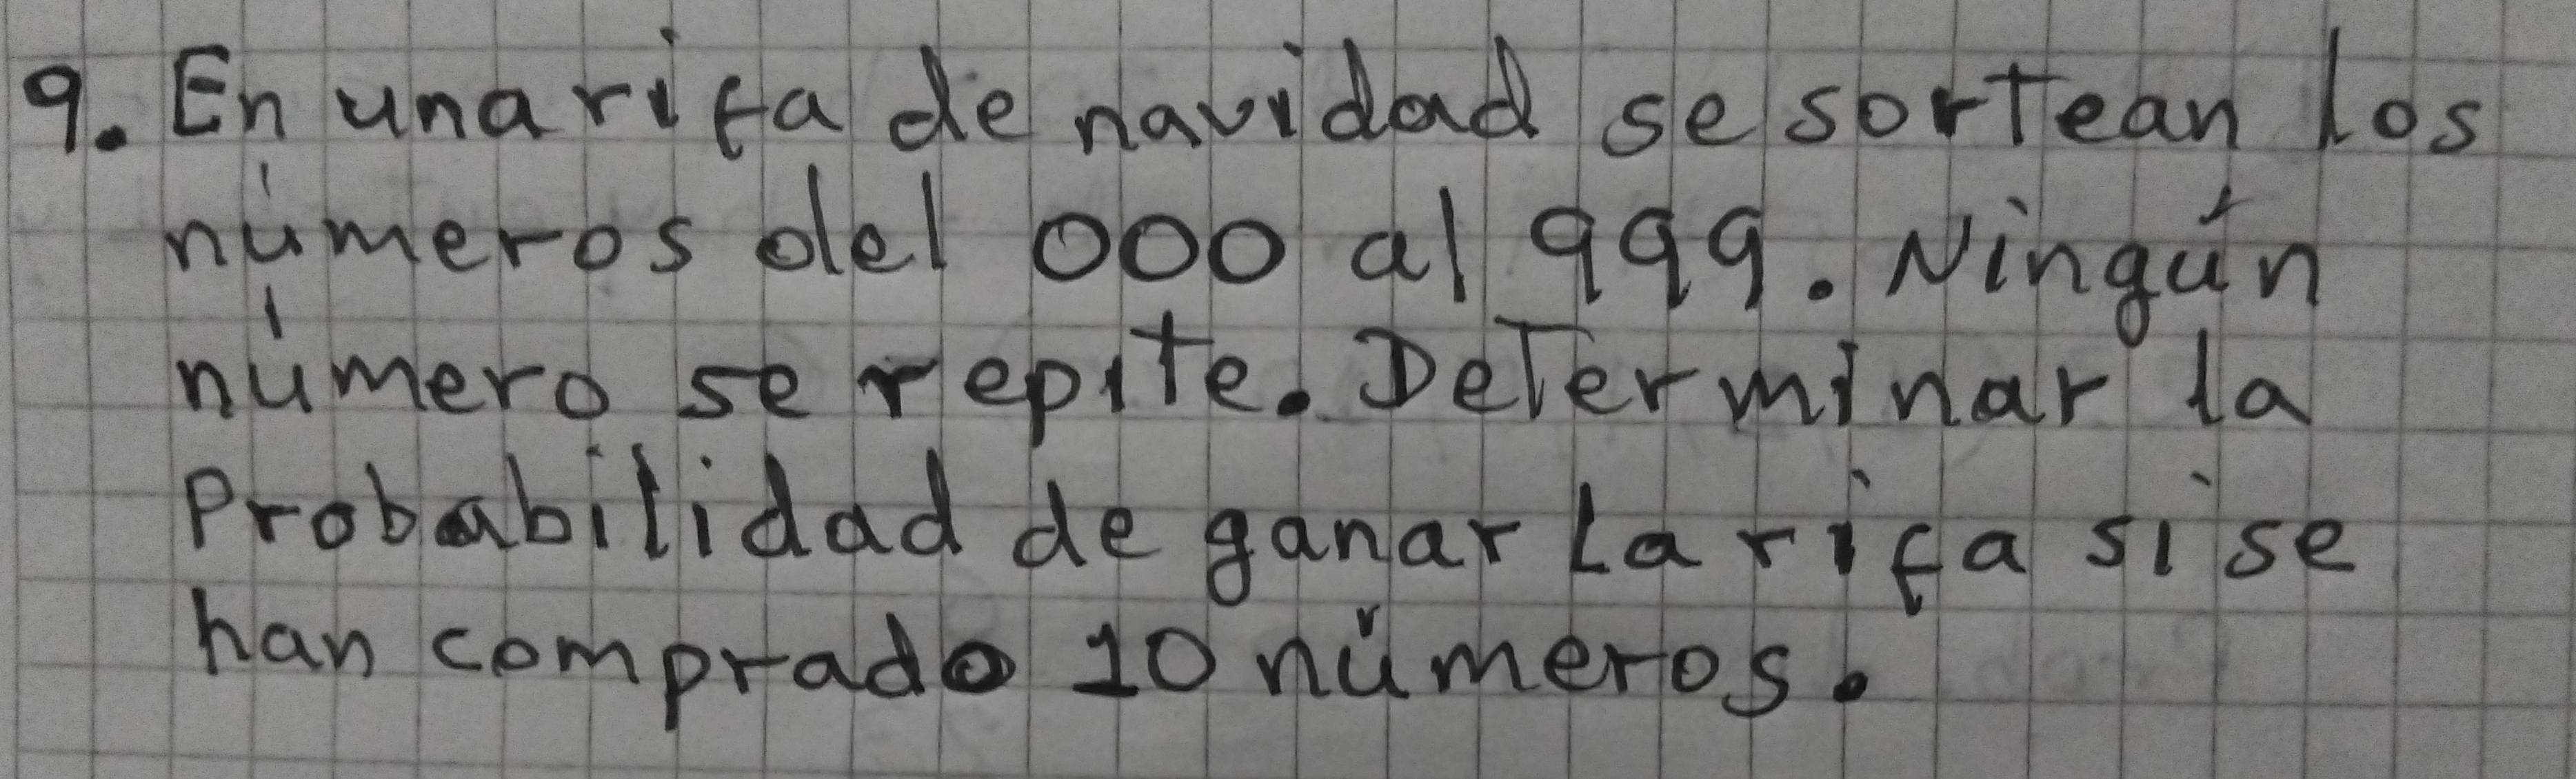 9. En una rifa de navidad se sortean los
números del 000 al 999. Ningún
número se repite. Determinar la
Probabilidad de ganar La rifa si se
han comprado 10 números.